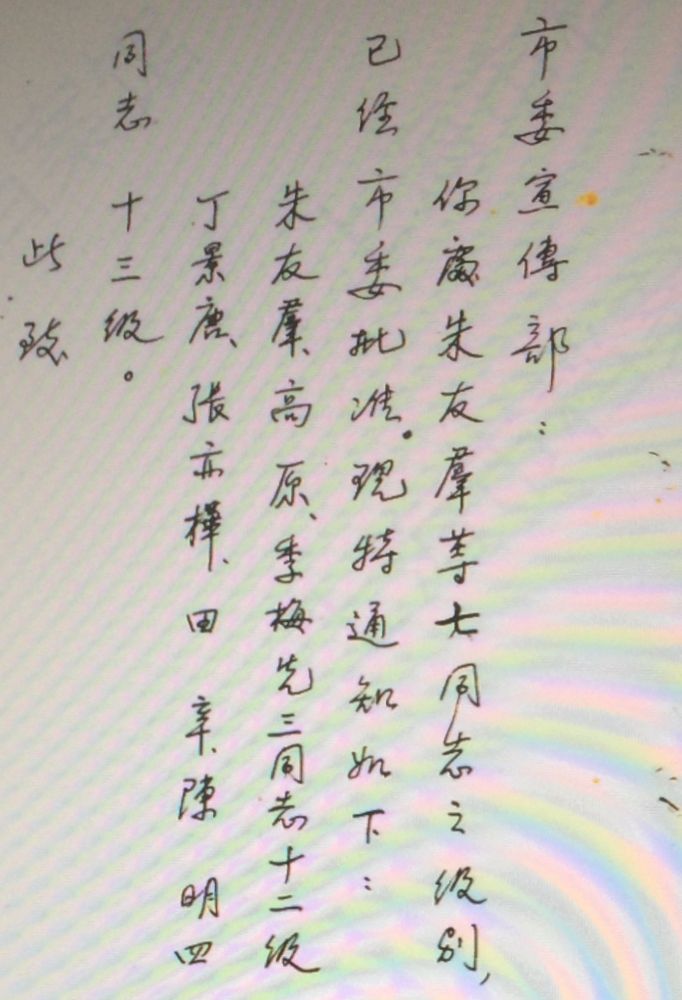 市委宣傳部：
你處朱友羣等七同志之级别，
已经市委批准。现特通知如下：
朱友羣、高原、季梅先三同志十二级
丁景唐、張亦樺、田辛、陳明四
同志十三级。
此致